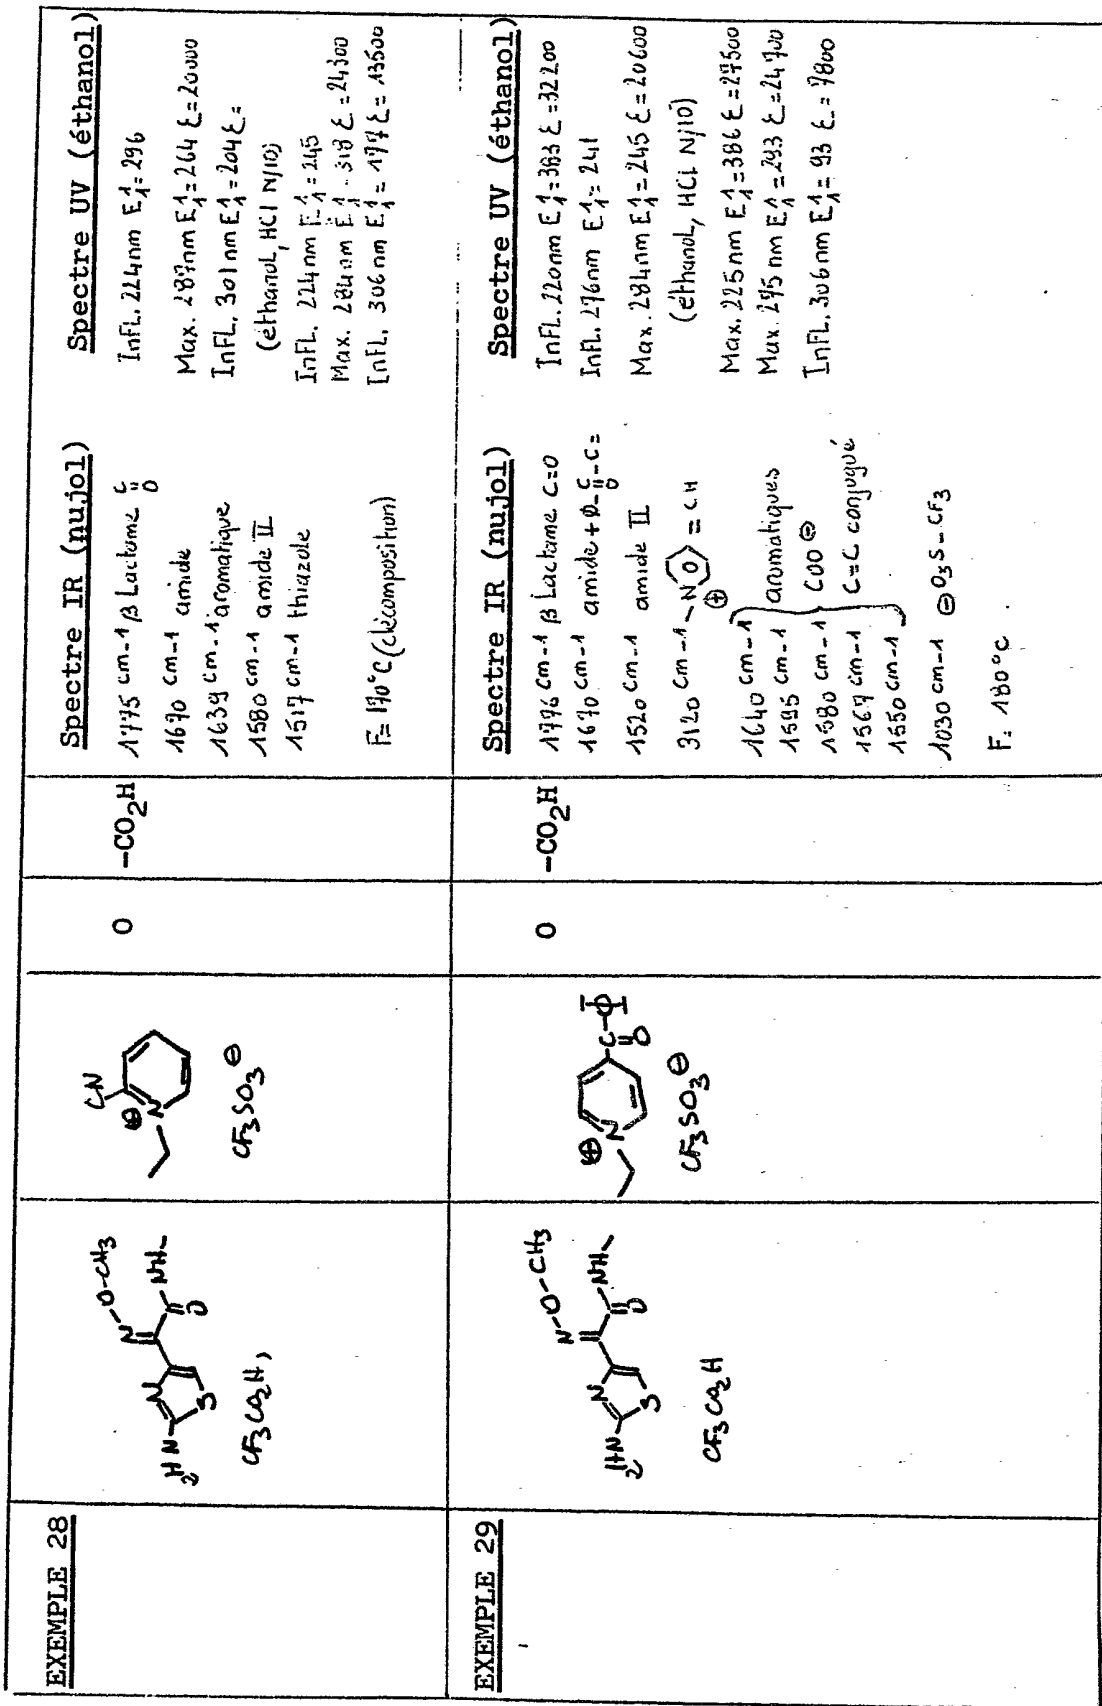 EXEMPLE 28
H2N
N
S
N-O-CH3
NH-
O
CF3CO2H,
CN
⊕
N
CF3SO3⊖
O
-CO2H
Spectre IR (nujol)
1775 cm-1 β Lactame C=O
1670 cm-1 amide
1639 cm-1 aromatique
1580 cm-1 amide II
1517 cm-1 thiazole
F= 170°C (décomposition)
Spectre UV (éthanol)
Infl. 224nm E11=296
Max. 287nm E11=264 ε=20000
Infl. 301nm E11=204 ε=
(éthanol, HCl N/10)
Infl. 224nm E11=245
Max. 284nm E11=318 ε=24300
Infl. 306nm E11=177 ε=13500
EXEMPLE 29
H2N
N
S
N-O-CH3
NH-
O
CF3CO2H
⊕
N
C-Φ
O
CF3SO3⊖
O
-CO2H
Spectre IR (nujol)
1776 cm-1 β Lactame C=O
1670 cm-1 amide + Φ-C-C=
O
1520 cm-1 amide II
3120 cm-1 -N =CH
⊕
1640 cm-1
1595 cm-1 aromatiques
1580 cm-1 COO⊖
1567 cm-1 C=C conjugué
1550 cm-1
1030 cm-1 ⊖O3S-CF3
F: 180°C
Spectre UV (éthanol)
Infl. 220nm E11=383 ε=32200
Infl. 276nm E11=241
Max. 284nm E11=245 ε=20600
(éthanol, HCl N/10)
Max. 225nm E11=386 ε=27500
Max. 275nm E11=293 ε=24700
Infl. 306nm E11=93 ε=7800